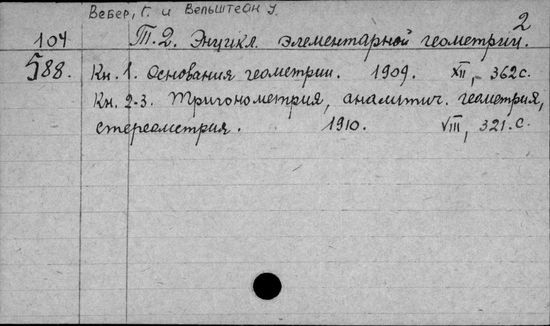 Вебер, Г. и Вельштеан У.
2
104 Т. 2. Энцикл. элементарной геометрии.
588. Кн. 1. Основания геометрии. 1909. XII, 362с.
Кн. 2-3. Тригонометрия, аналитич. геометрия,
стереометрия. 1910. VIII, 321.с.